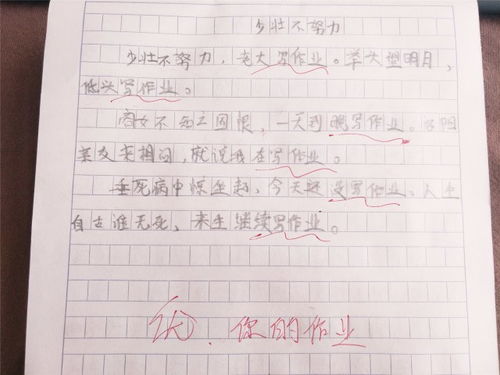 少壮不努力
少壮不努力，老大写作业。举头望明月，
低头写作业。
商女不知亡国恨，一天到晚写作业。洛阳
亲友如相问，就说我在写作业。
垂死病中惊坐起，今天还没写作业，人生
自古谁无死，来生继续写作业。
优．你的作业